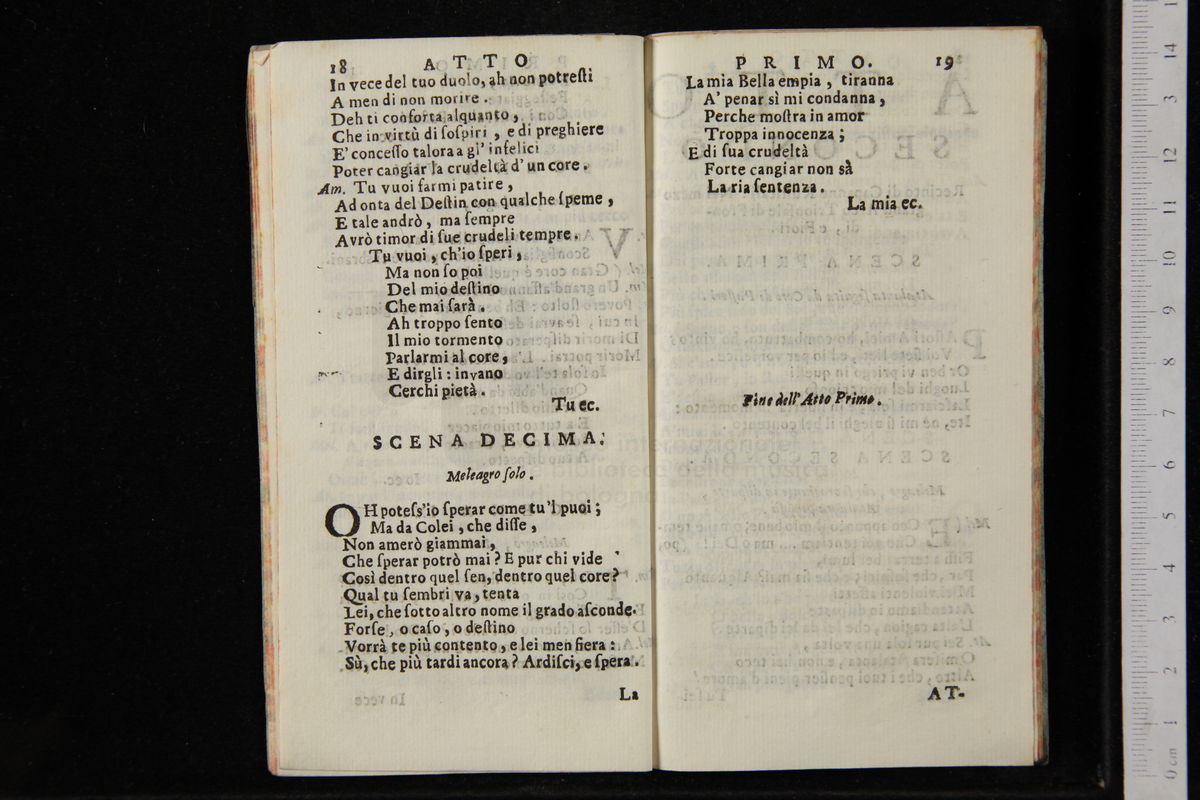 18 ATTO
In vece del tuo duolo, ah non potreſti
A men di non morire.
Deh ti conforta alquanto,
Che in virtù di ſoſpiri, e di preghiere
E' conceſſo talora a gl' infelici
Poter cangiar la crudeltà d' un core.
Am. Tu vuoi farmi patire,
Ad onta del Deſtin con qualche ſpeme,
E tale andrò, ma ſempre
Avrò timor di ſue crudeli tempre.
Tu vuoi, ch'io ſperi,
Ma non ſo poi
Del mio deſtino
Che mai ſarà.
Ah troppo ſento
Il mio tormento
Parlarmi al core,
E dirgli: invano
Cerchi pietà.
Tu ec.
SCENA DECIMA.
Meleagro ſolo.
OH poteſs'io ſperar come tu'l puoi;
Ma da Colei, che diſſe,
Non amerò giammai,
Che ſperar potrò mai? E pur chi vide
Così dentro quel ſen, dentro quel core?
Qual tu ſembri va, tenta
Lei, che ſotto altro nome il grado aſconde.
Forſe, o caſo, o deſtino
Vorrà te più contento, e lei men fiera:
Sù, che più tardi ancora? Ardiſci, e ſpera.
La
PRIMO. 19
La mia Bella empia, tiranna
A' penar sì mi condanna,
Perche moſtra in amor
Troppa innocenza;
E di ſua crudeltà
Forte cangiar non sà
La ria ſentenza.
La mia ec.
Fine dell' Atto Primo.
AT-